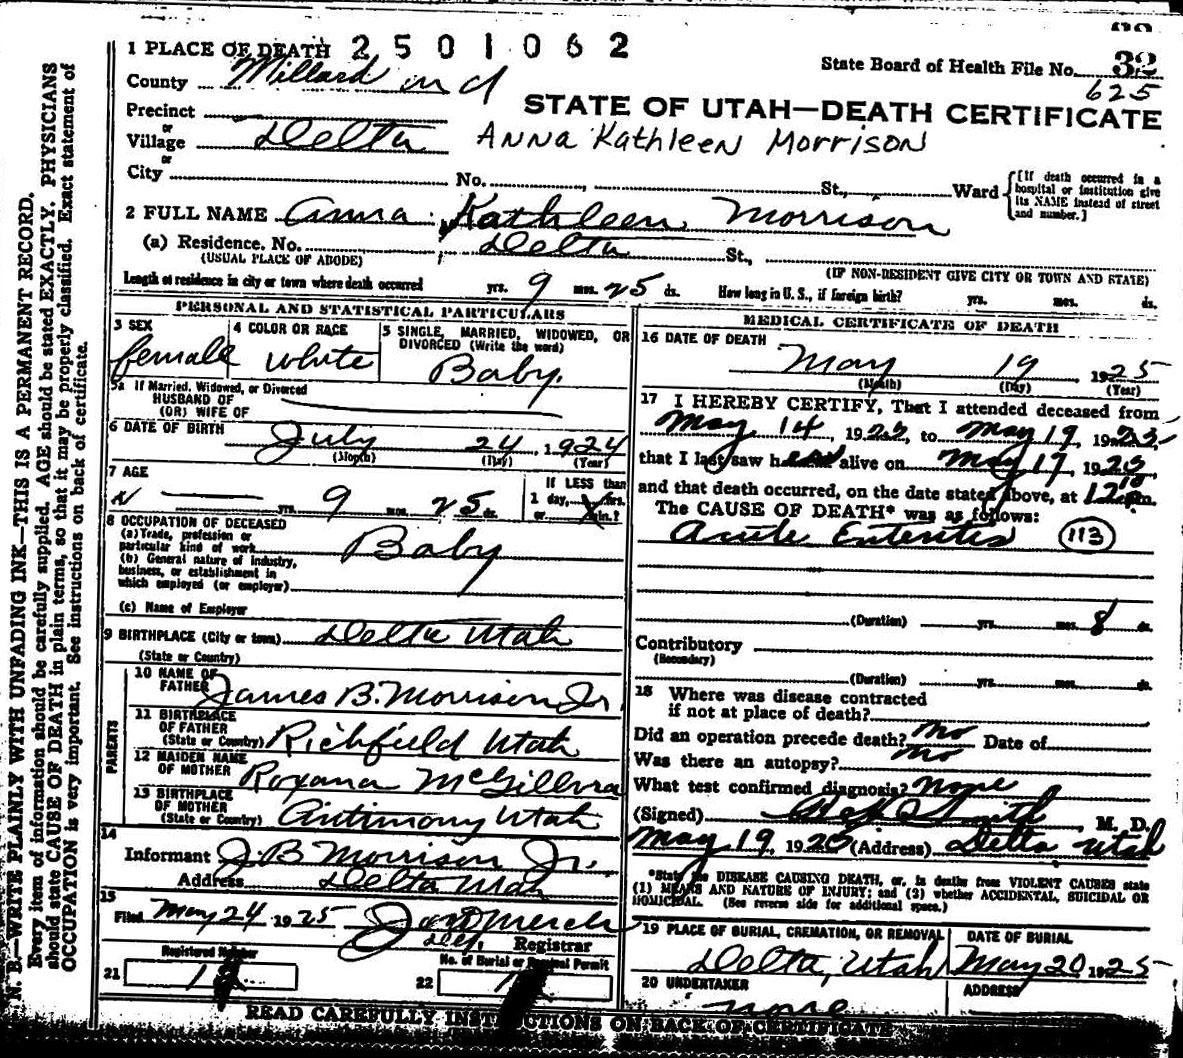 1 PLACE OF DEATH 2501062
State Board of Health File No. 32
625
County Millard
STATE OF UTAH—DEATH CERTIFICATE
Precinct
or
Village Delta
Anna Kathleen Morrison
or
City No. , St., Ward
{[If death occurred in a hospital or institution give its NAME instead of street and number.]
2 FULL NAME Anna Kathleen Morrison
(a) Residence. No. Delta St.,
(USUAL PLACE OF ABODE) (IF NON-RESIDENT GIVE CITY OR TOWN AND STATE)
Length of residence in city or town where death occurred yrs. 9 mos. 25 ds. How long in U. S., if foreign birth? yrs. mos. ds.
PERSONAL AND STATISTICAL PARTICULARS
3 SEX
female
4 COLOR OR RACE
white
5 SINGLE, MARRIED, WIDOWED, OR
DIVORCED (Write the word)
Baby.
5a If Married, Widowed, or Divorced
HUSBAND OF
(OR) WIFE OF
6 DATE OF BIRTH July 24, 1924
(Month) (Day) (Year)
7 AGE
yrs. 9 mos. 25 ds.
If LESS than
1 day, hrs.
or min.?
8 OCCUPATION OF DECEASED
(a) Trade, profession or
particular kind of work Baby
(b) General nature of industry,
business, or establishment in
which employed (or employer)
(c) Name of Employer
9 BIRTHPLACE (City or town) Delta Utah
(State or Country)
PARENTS
10 NAME OF
FATHER James B. Morrison Jr.
11 BIRTHPLACE
OF FATHER
(State or Country) Richfield Utah
12 MAIDEN NAME
OF MOTHER Roxana McGillvra
13 BIRTHPLACE
OF MOTHER
(State or Country) Antimony Utah
14
Informant J. B. Morrison Jr.
Address Delta Utah
15
Filed May 24 1925
Registrar
Registered Number
21
No. of Burial or Removal Permit
22
MEDICAL CERTIFICATE OF DEATH
16 DATE OF DEATH
May 19 1925
(Month) (Day) (Year)
17 I HEREBY CERTIFY, That I attended deceased from
May 14, 1925, to May 19, 1925
that I last saw her alive on May 17, 1925
and that death occurred, on the date stated above, at 12 m.
The CAUSE OF DEATH* was as follows:
Acute Enteritis 113
(Duration) yrs. mos. 8 ds.
Contributory
(Secondary)
(Duration) yrs. mos. ds.
18 Where was disease contracted
if not at place of death?
Did an operation precede death? No Date of
Was there an autopsy? No
What test confirmed diagnosis? none
(Signed) Smith, M. D.
May 19, 1925 (Address) Delta Utah
*State the DISEASE CAUSING DEATH, or, in deaths from VIOLENT CAUSES state
(1) MEANS AND NATURE OF INJURY; and (2) whether ACCIDENTAL, SUICIDAL OR
HOMICIDAL. (See reverse side for additional space.)
19 PLACE OF BURIAL, CREMATION, OR REMOVAL
Delta, Utah
DATE OF BURIAL
May 20 1925
20 UNDERTAKER
none
ADDRESS
READ CAREFULLY INSTRUCTIONS ON BACK OF CERTIFICATE
N. B.—WRITE PLAINLY WITH UNFADING INK—THIS IS A PERMANENT RECORD.
Every item of information should be carefully supplied. AGE should be stated EXACTLY. PHYSICIANS
should state CAUSE OF DEATH in plain terms, so that it may be properly classified. Exact statement of
OCCUPATION is very important. See instructions on back of certificate.